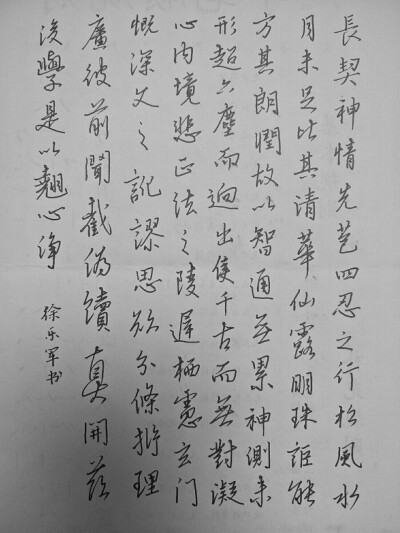 長契神情先苞四忍之行松風水
月未足比其清華仙露明珠詎能
方其朗潤故以智通无累神測未
形超六塵而迥出隻千古而無對凝
心内境悲正法之陵遲栖慮玄门
慨深文之訛謬思欲分條析理
廣彼前聞截偽續真開茲
後學是以翹心净
徐乐军书